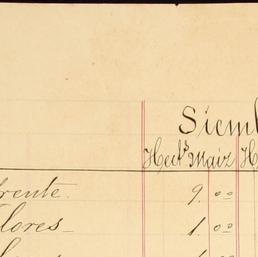 Siem
Hect.s Maiz H
rente. 9. 00
lores 1. 00